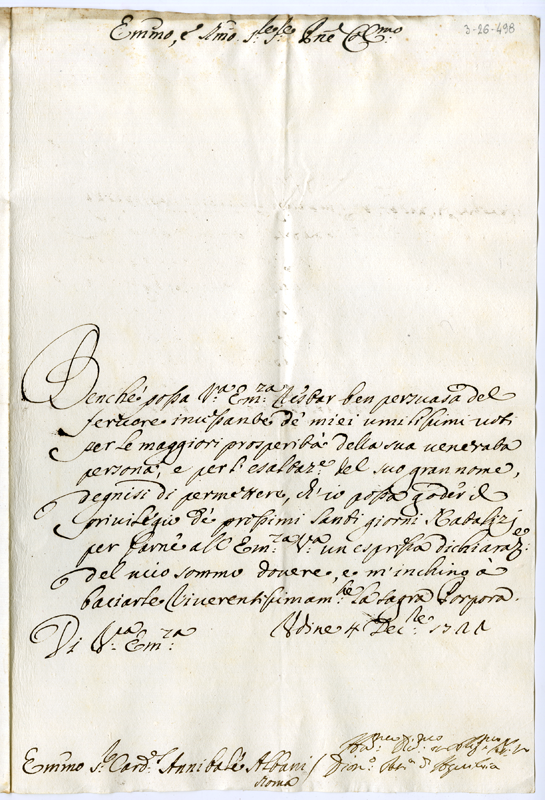 3-26-498
Em̃mo, e Rm̃o Sig.r Sig.r Pne Col.mo
Benché possa V.ra Em.za restar ben persuasa del
fervore incessante de' miei umilissimi voti
per le maggiori prosperità della sua venerata
persona, e per l'esaltaz.e del suo gran nome,
degnisi di permettere, ch'io possa goder il
privilegio de' prossimi Santi giorni Natalizj
per farne all'Em.za V.ra un espressa dichiaraz.e
del mio sommo dovere, e m'inchino à
baciarle riverentissimam.te la sagra Porpora.
Di V.ra Em.za Udine 4 Dec.bre
Em̃mo S.r Card.e Annibale Albani /
Roma
Dion.o